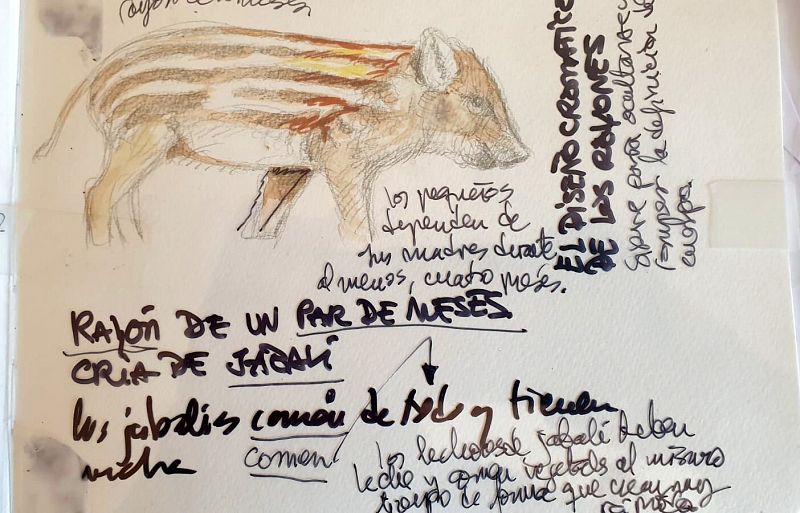 los pequeños
dependen de
sus madres durante
al menos, cuatro meses.
EL DISEÑO CROMÁTICO
DE LOS RAYONES
sirve para ocultarse y
romper la definición del
cuerpo
RAYÓN DE UN PAR DE MESES.
CRÍA DE JABALÍ
Los jabalíes comén de todo y tienen
comen
los lechones de jabalí beben
leche y comen vegetales al mismo
tiempo de forma que crecen muy